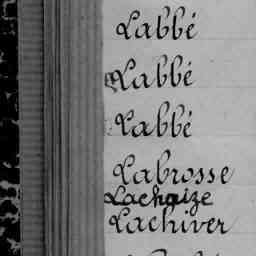 Labbé
Labbé
Labbé
Labrosse
Lachaize
Lachiver